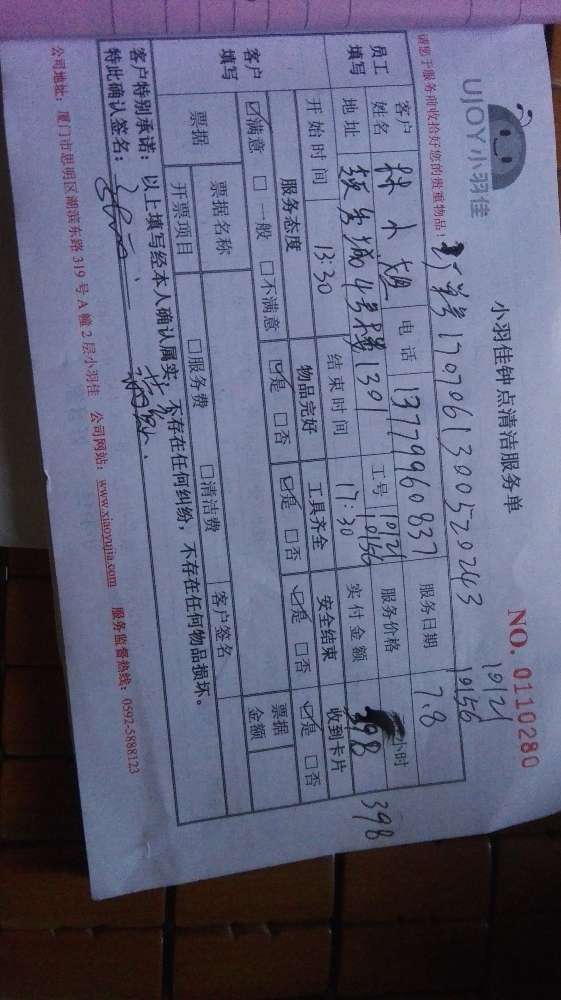 UJOY小羽佳
小羽佳钟点清洁服务单
NO. 0110280
请您于服务前收拾好您的贵重物品!
1707061300520243
10121
10156
员工填写
客户姓名 林小姐 电话 13779960837 服务日期 7.8
地址 4号楼1301 工号 10121 10156 服务价格 小时
开始时间 13:30 结束时间 17:30 实付金额 398 398
客户填写
服务态度 物品完好 工具齐全 安全结束 收到卡片
☑满意 □一般 □不满意 ☑是 □否 ☑是 □否 ☑是 □否 ☑是 □否
票据 票据名称 客户签名 票据金额
开票项目 □服务费 □清洁费
客户特别承诺: 以上填写经本人确认属实,不存在任何纠纷,不存在任何物品损坏。
特此确认签名:
公司地址:厦门市思明区湖滨东路319号A幢2层小羽佳 公司网站:www.xiaoyujia.com 服务监督热线:0592-5888123